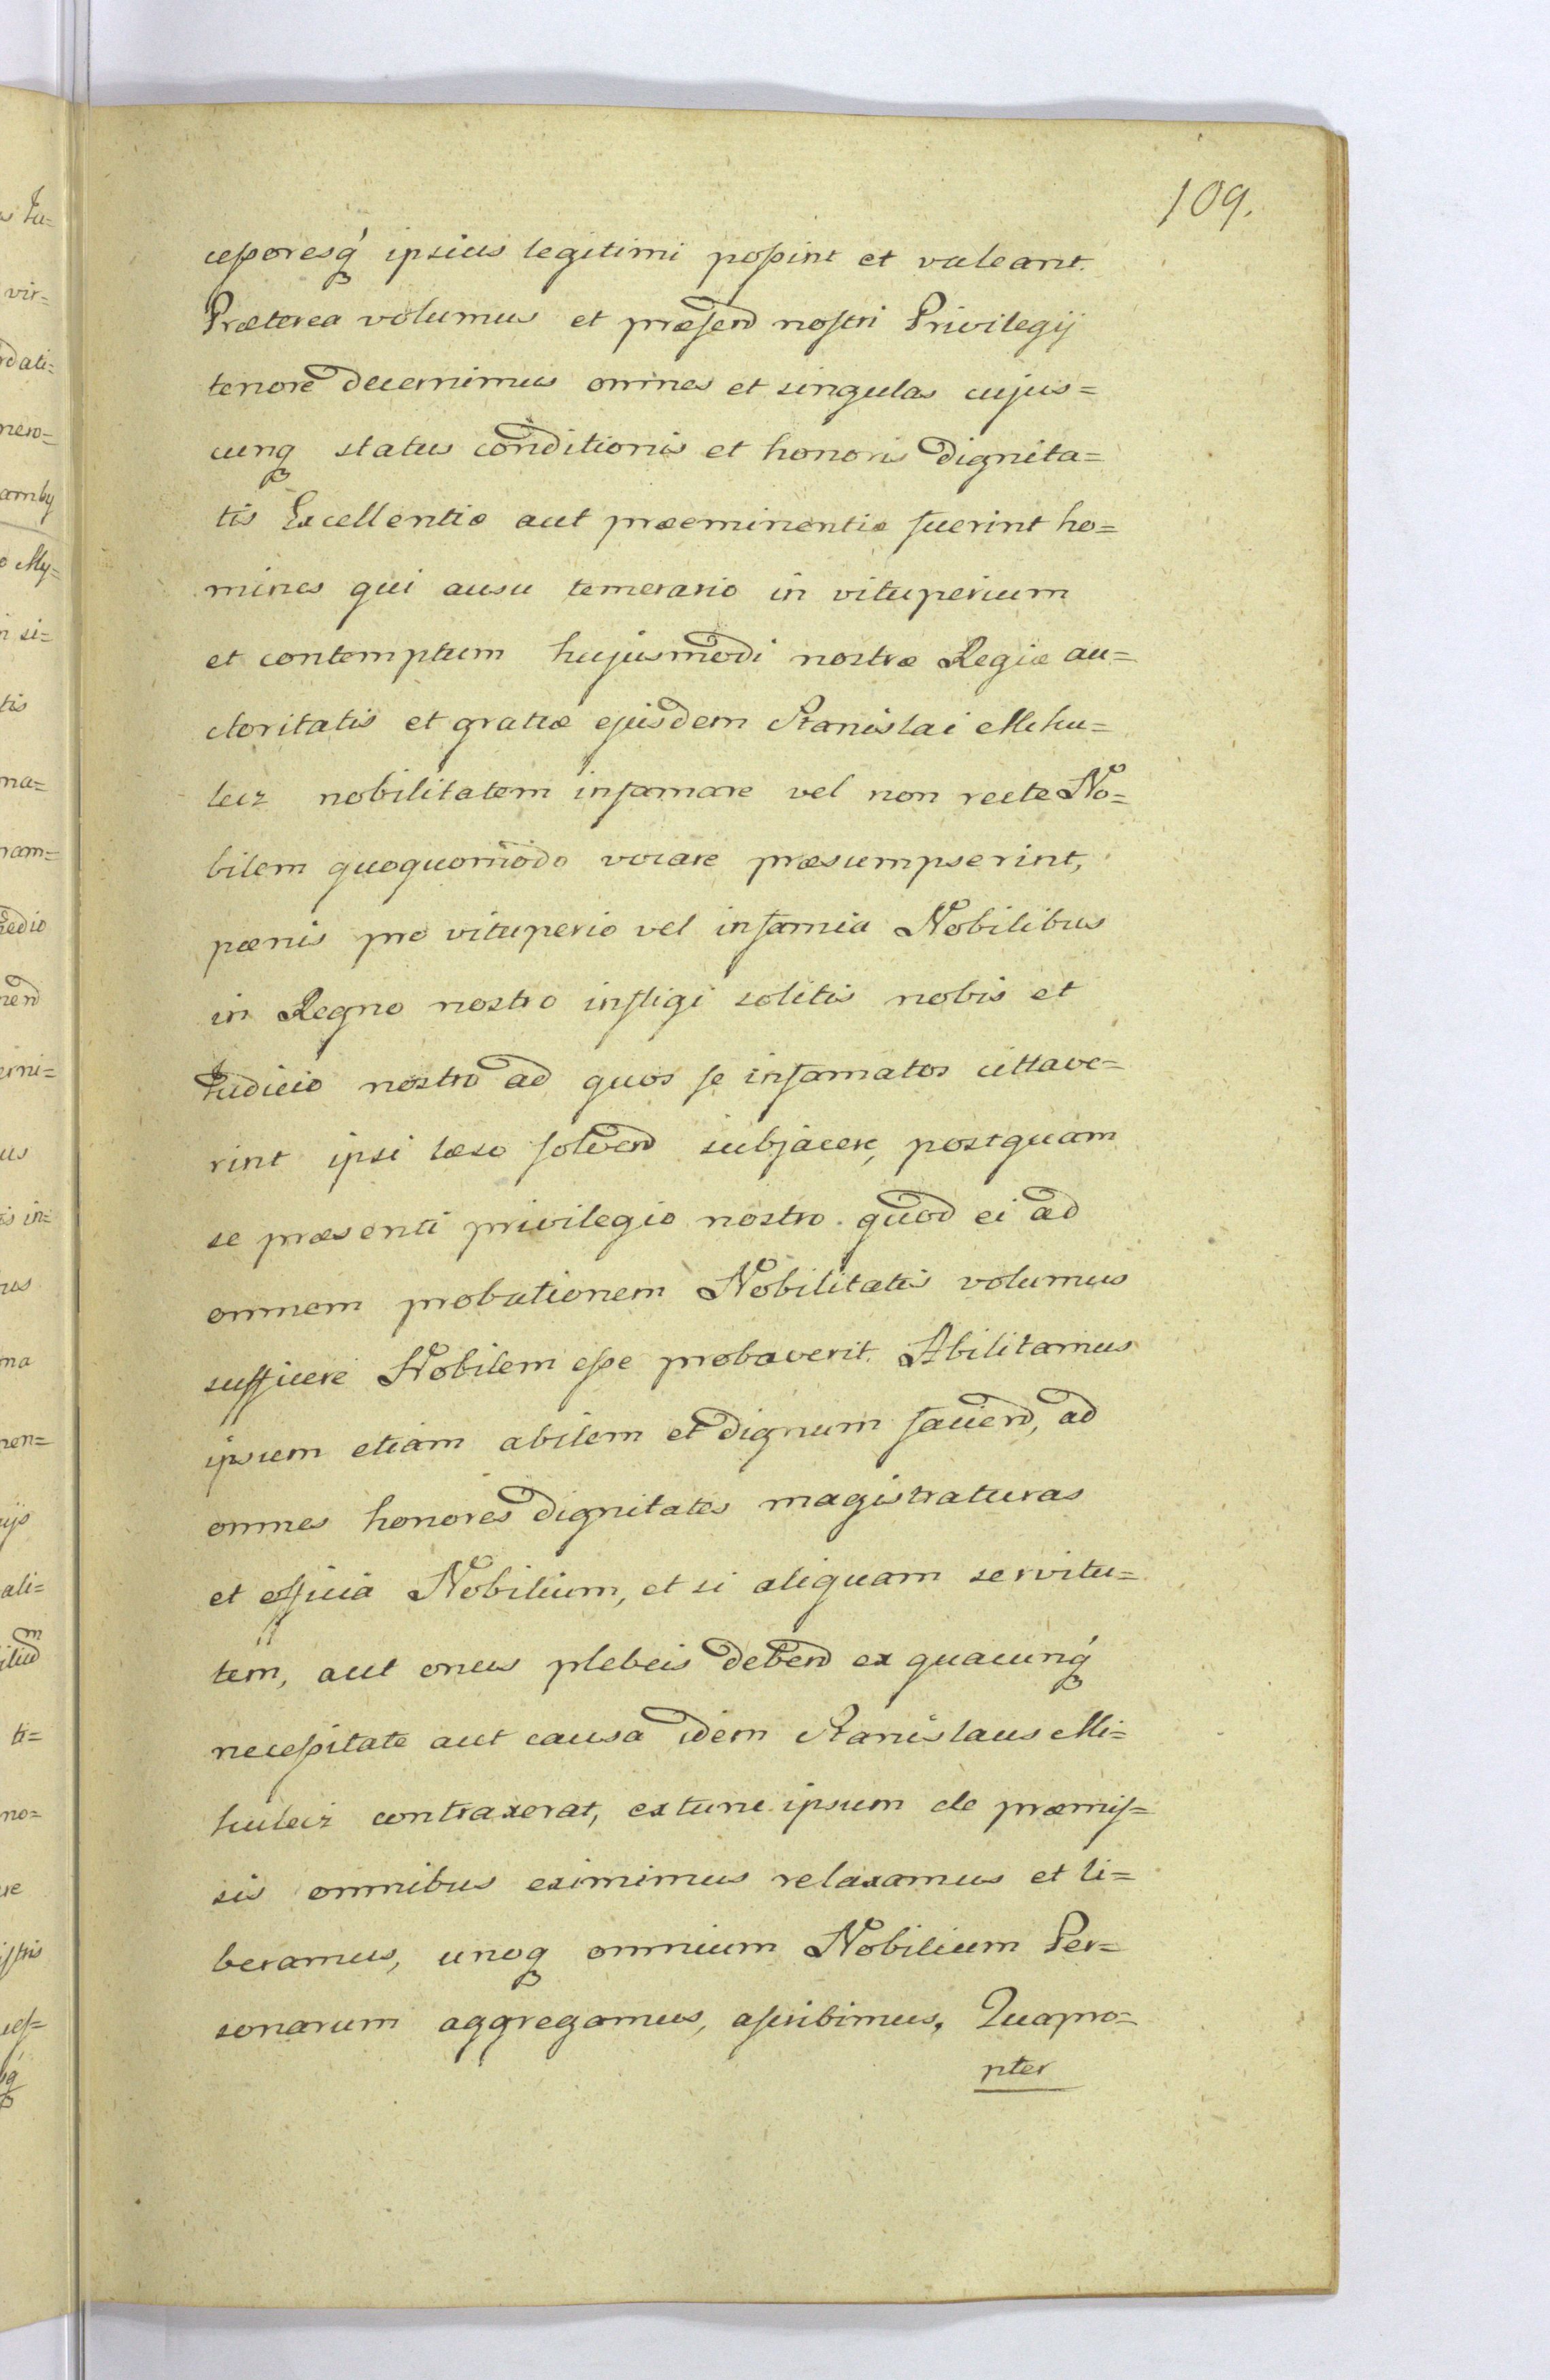 109.
ceſsoresq́ ipsius legitimi poſsint et valeant.
Præterea volumus et præſend nostri Privilegij
tenore decernimus omnes et singulas cujus=
cunq status conditionis et honoris dignita=
tis Excellentiæ aut præeminentiæ fuerint ho=
mines qui ausu temerario in vituperium
et contemptum hujusmodi nostræ Regiæ au=
ctoritatis et gratiæ ejusdem Stanislai Mihu=
lecz nobilitatem infamare vel non recte No=
bilem quoquomodo vocare præsumpserint,
pœnis pro vituperio vel infamia Nobilibus
in Regno nostro infligi solitis nobis et
Iudicio nostro ad quos se infamatos cittave=
rint ipsi læso solvend subjacere, postquam
se præsenti privilegio nostro quod ei ad
omnem probationem Nobilitatis volumus
sufficere Nobilem eſse probaverit. Abilitamus
ipsum etiam abilem et dignum faciend, ad
omnes honores dignitates magistraturas
et officia Nobilium, et si aliquam servitu=
tem, aut onus plebeis debend ex quacunq́
neceſsitate aut causa idem Stanislaus Mi=
hulecz contraxerat, extunc ipsum de præmiſ=
sis omnibus eximimus relaxamus et li=
beramus, unoq omnium Nobilium Per=
sonarum aggregamus, aſcribimus. Quapro=
pter